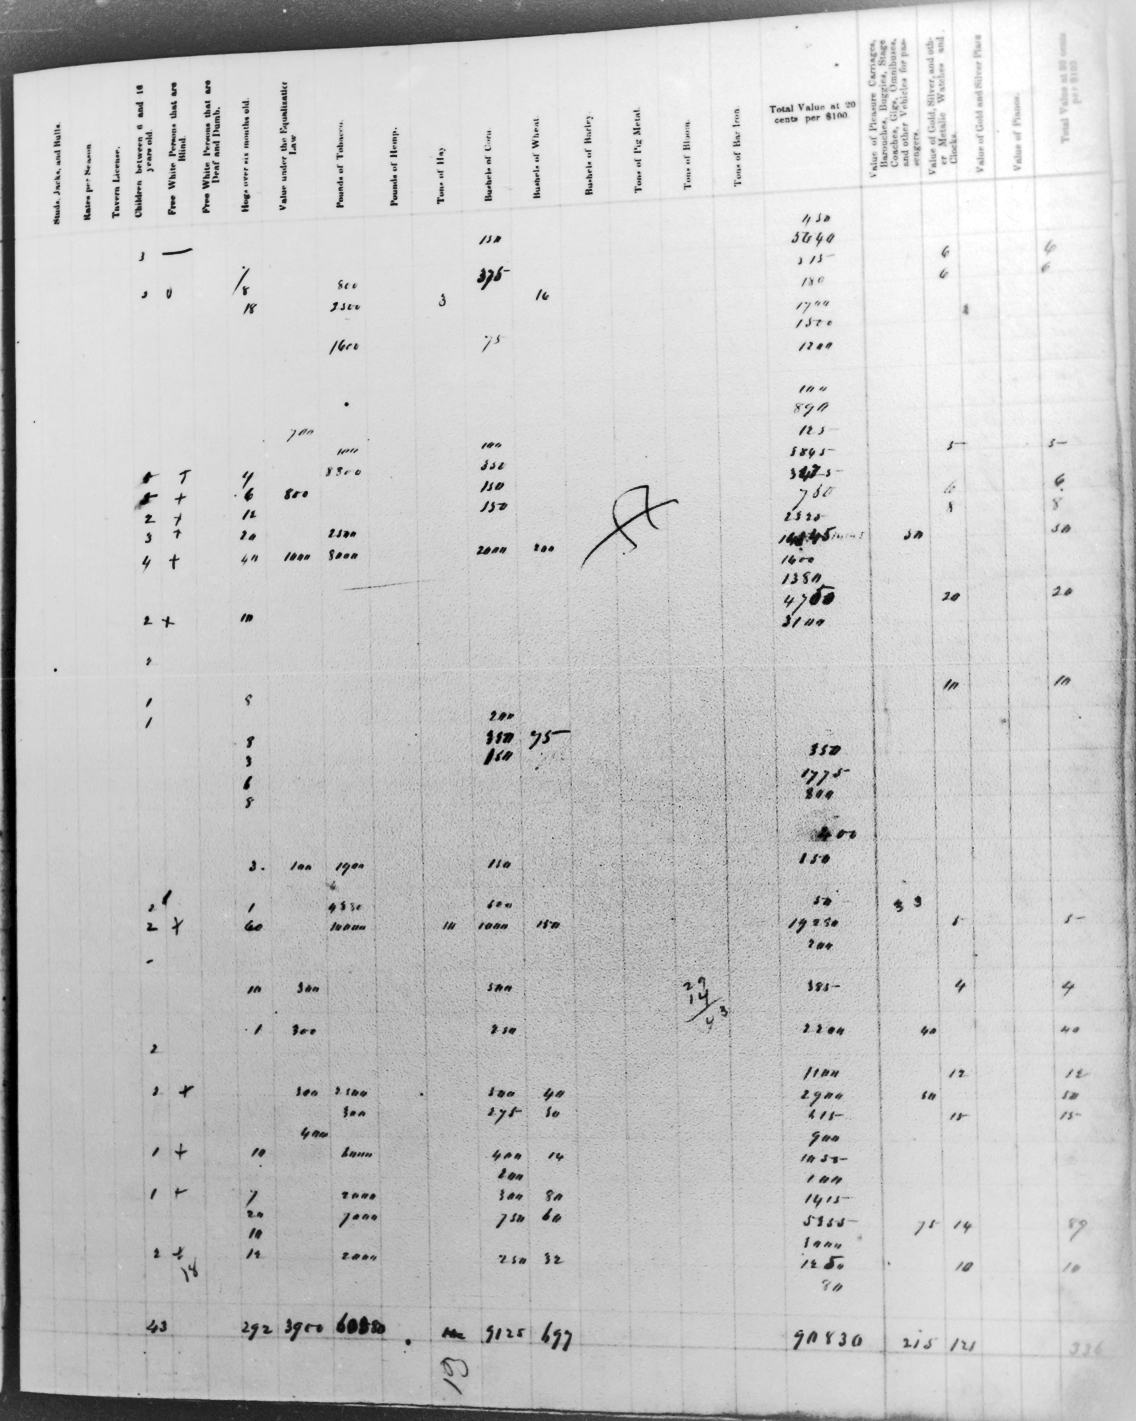 Studs, Jacks, and Bulls.
Rates per Season
Tavern License.
Children between 6 and 16 years old.
Free White Persons that are Blind.
Free White Persons that are Deaf and Dumb.
Hogs over six months old.
Value under the Equalization Law
Pounds of Tobacco.
Pounds of Hemp.
Tons of Hay
Bushels of Corn.
Bushels of Wheat.
Bushels of Barley.
Tons of Pig Metal.
Tons of Bloom.
Tons of Bar Iron.
Total Value at 20 cents per $100.
Value of Pleasure Carriages, Barouches, Buggies, Stage Coaches, Gigs, Omnibuses, and other Vehicles for passengers.
Value of Gold, Silver, and other Metalic Watches and Clocks.
Value of Gold and Silver Plate
Value of Pianos.
Total Value at 30 cents per $100.
450
150 5640
3 — 315 6 6
375 6 6
3 8 800 180
18 2500 3 16 1700
1500
1600 75 1200
100
890
700 125
100 100 5845 5 5
+ 4 8300 350
+ 6 800 150 750 6 6
2 + 12 150 2525 8 8
3 + 20 2500 50 50
4 + 40 1000 8000 2000 200 1600
1380
4750 20 20
2 + 10 3100
2
10 10
1 8
1 200
8 350 75 350
3 150 1775
6 800
8
400
3 100 1900 150 150
2 1 500 50
2 + 60 10000 10 1000 150 19250 5 5
200
10 300 500 29 14 43 385 4 4
1 300 250 2200 40 40
2
1100 12 12
3 + 300 2500 500 40 2900 50 50
300 275 50 615 15 15
400 900
1 + 10 6000 400 14 1055
200 100
1 + 7 2000 300 80 1415
20 7000 750 60 5355 75 14 89
10 3000
2 + 12 2000 250 32 1250 10 10
14 80
43 292 3900 9125 697 90830 215 121 336
19